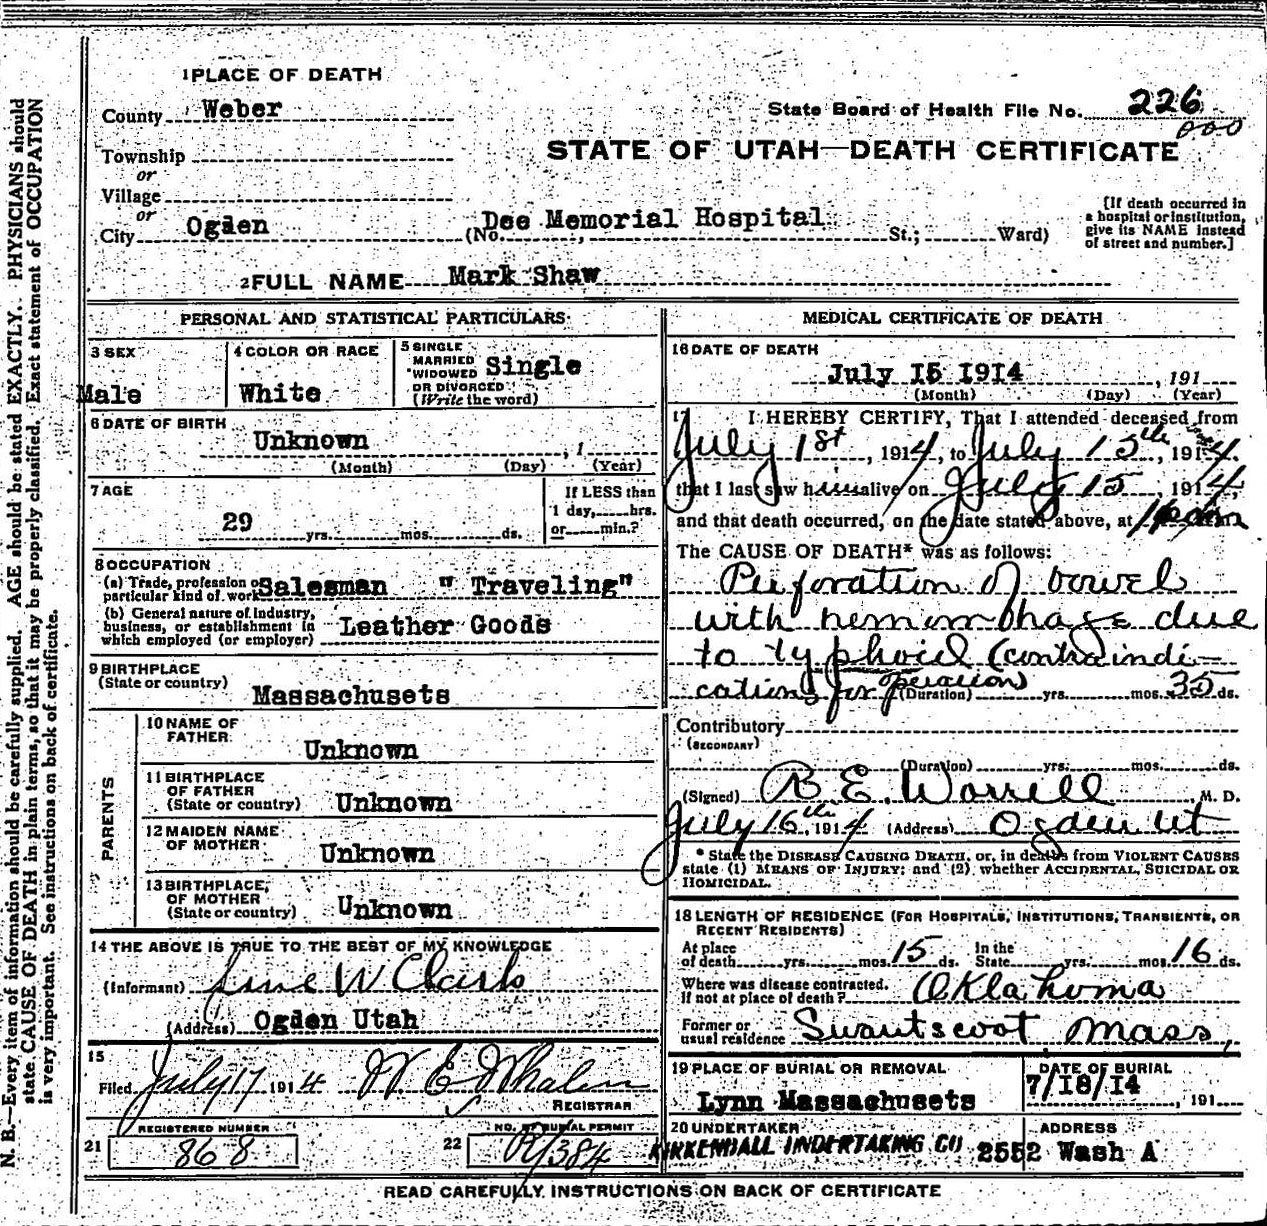 N. B.—Every item of information should be carefully supplied. AGE should be stated EXACTLY. PHYSICIANS should
state CAUSE OF DEATH in plain terms, so that it may be properly classified. Exact statement of OCCUPATION
is very important. See instructions on back of certificate.
1 PLACE OF DEATH
County Weber
State Board of Health File No. 226
000
STATE OF UTAH—DEATH CERTIFICATE
Township
or
Village
or
City Ogden (No. Dee Memorial Hospital St.; Ward)
[If death occurred in
a hospital or institution,
give its NAME instead
of street and number.]
2 FULL NAME Mark Shaw
PERSONAL AND STATISTICAL PARTICULARS
3 SEX
Male
4 COLOR OR RACE
White
5 SINGLE
MARRIED
WIDOWED
OR DIVORCED
(Write the word)
Single
6 DATE OF BIRTH
Unknown , 1
(Month) (Day) (Year)
7 AGE
29 yrs. mos. ds.
If LESS than
1 day, hrs.
or min.?
8 OCCUPATION
(a) Trade, profession or
particular kind of work Salesman " Traveling"
(b) General nature of industry,
business, or establishment in
which employed (or employer) Leather Goods
9 BIRTHPLACE
(State or country)
Massachusets
PARENTS
10 NAME OF
FATHER
Unknown
11 BIRTHPLACE
OF FATHER
(State or country) Unknown
12 MAIDEN NAME
OF MOTHER
Unknown
13 BIRTHPLACE
OF MOTHER
(State or country) Unknown
14 THE ABOVE IS TRUE TO THE BEST OF MY KNOWLEDGE
(Informant) W Clark
(Address) Ogden Utah
15
Filed July 17 1914 W E Whalen
REGISTRAR
21 REGISTERED NUMBER
868
22 NO. OF BURIAL PERMIT
R/384
MEDICAL CERTIFICATE OF DEATH
16 DATE OF DEATH
July 15 1914 , 191
(Month) (Day) (Year)
17 I HEREBY CERTIFY, That I attended deceased from
July 1st , 1914, to July 15th , 1914.
that I last saw him alive on July 15 , 1914,
and that death occurred, on the date stated above, at
The CAUSE OF DEATH* was as follows:
Perforation of bowel
with hemorrhage due
to typhoid (contraindi-
cations for operation)
(Duration) yrs. mos. 35 ds.
Contributory
(SECONDARY)
(Duration) yrs. mos. ds.
(Signed) R. E. Worrell M. D.
July 16th , 1914 (Address) Ogden Ut
* State the DISEASE CAUSING DEATH, or, in deaths from VIOLENT CAUSES
state (1) MEANS OF INJURY; and (2) whether ACCIDENTAL, SUICIDAL OR
HOMICIDAL.
18 LENGTH OF RESIDENCE (FOR HOSPITALS, INSTITUTIONS, TRANSIENTS, OR
RECENT RESIDENTS)
At place
of death yrs. mos. 15 ds. In the
State yrs. mos. 16 ds.
Where was disease contracted.
If not at place of death? Oklahoma
Former or
usual residence Swautscoot, Mass,
19 PLACE OF BURIAL OR REMOVAL
Lynn Massachusets
DATE OF BURIAL
7/18/14 , 191
20 UNDERTAKER
KIRKENDALL UNDERTAKING CO
ADDRESS
2552 Wash A
READ CAREFULLY INSTRUCTIONS ON BACK OF CERTIFICATE